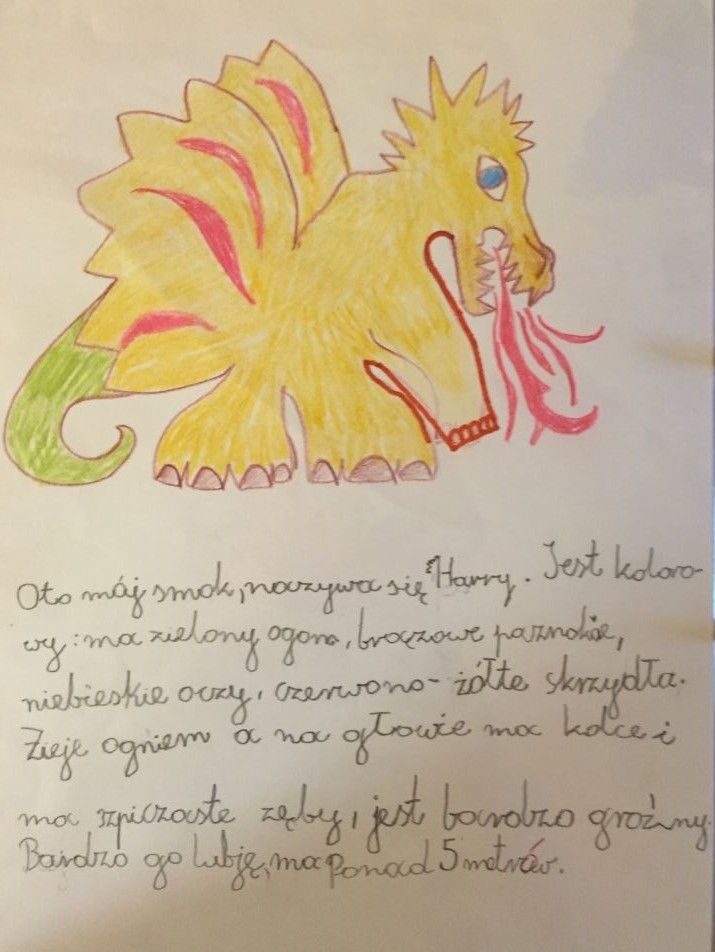 Oto mój smok, nazywa się Harry. Jest koloro-
wy: ma zielony ogon, brązowe paznokcie,
niebieskie oczy, czerwono-żółte skrzydła.
Zieje ogniem a na głowie ma kolce i
ma szpiczaste zęby, jest bardzo groźny.
Bardzo go lubję, ma ponad 5 metrów.